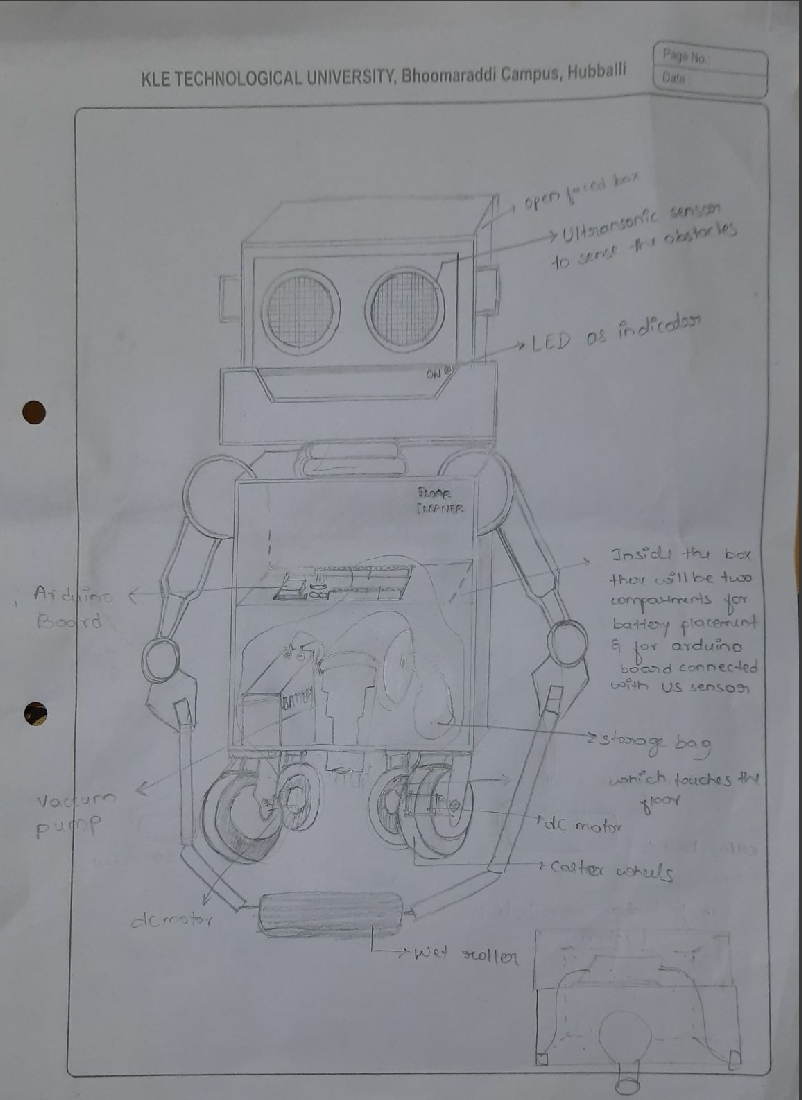 KLE TECHNOLOGICAL UNIVERSITY, Bhoomaraddi Campus, Hubballi
Page No.
Date
open faced box
Ultrasonic sensor
to sense the obstacles
LED as indicator
ON
FLOOR
CLEANER
Arduino
Board
Inside the box
ther will be two
compartments for
battery placement
& for arduino
board connected
with US sensor
BATTERY
storage bag
Vacuum
pump
which touches the
floor
dc motor
caster wheels
dc motor
wet roller